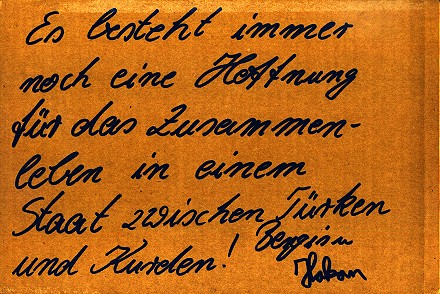 Es besteht immer
noch eine Hoffnung
für das Zusammen-
leben in einem
Staat zwischen Türken
und Kurden!
Hakan